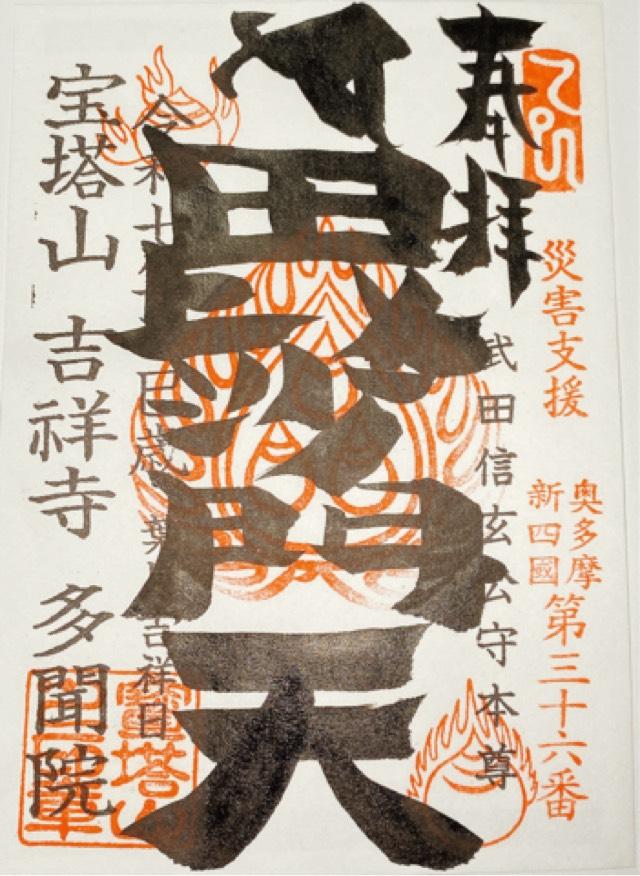 災害支援
奥多摩
新四國
第三十六番
奉拝
武田信玄公守本尊
毘沙門天
令和七年 巳歳 葉月吉祥日
宝塔山 吉祥寺 多聞院